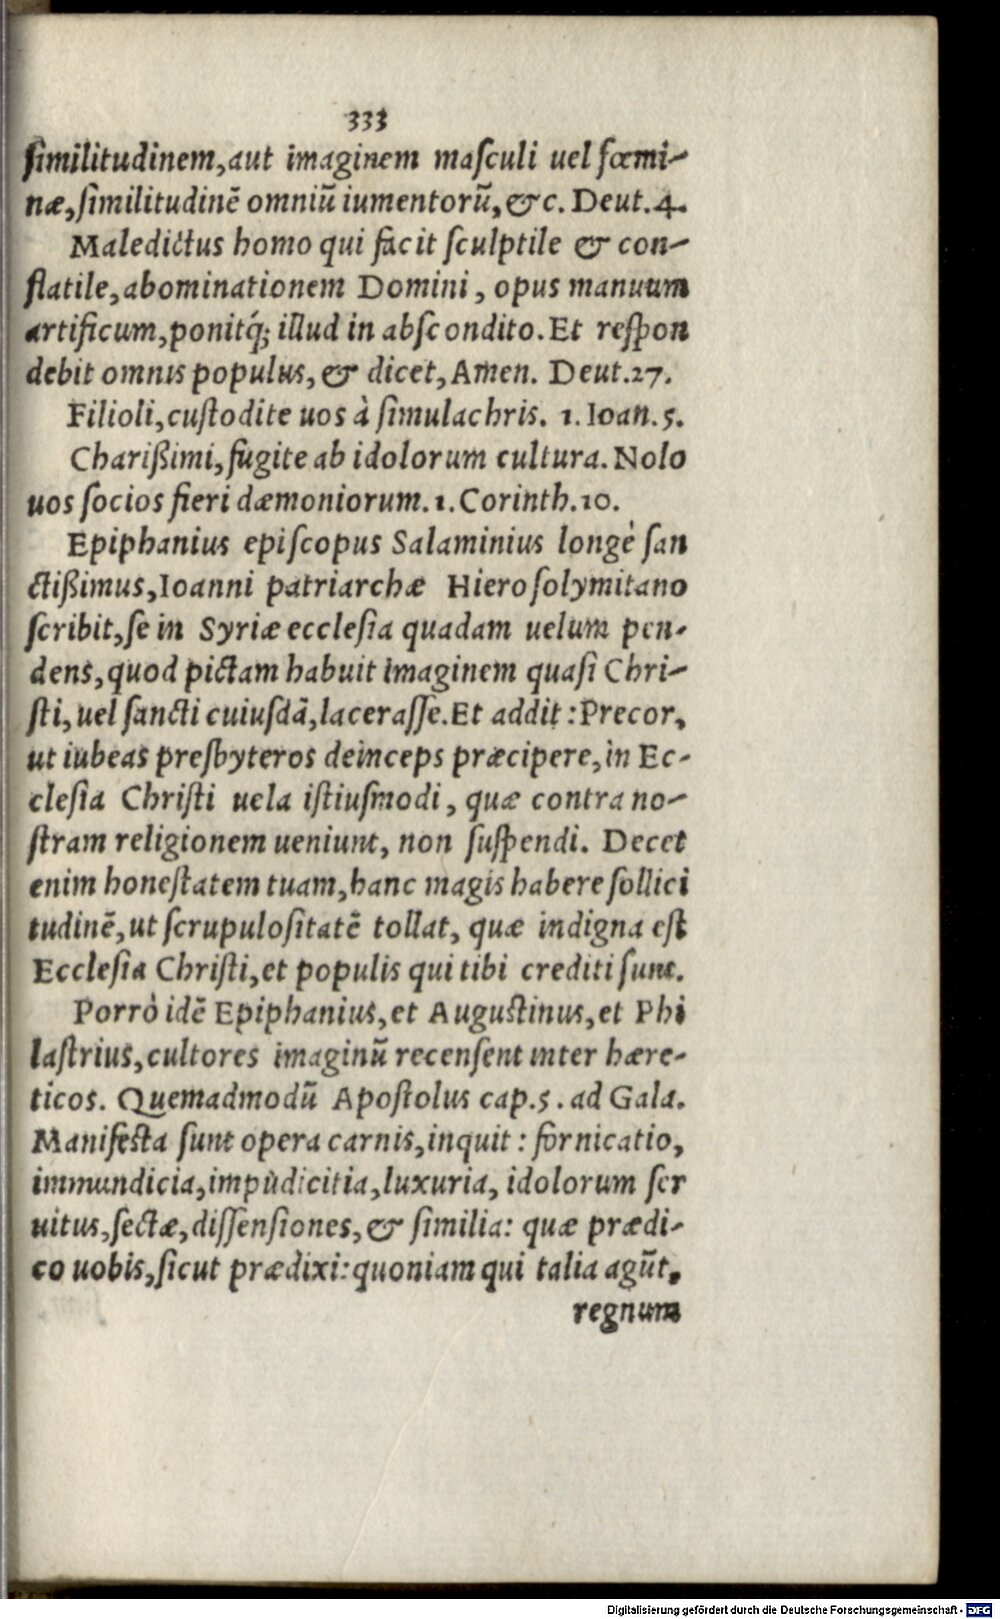 333
ſimilitudinem, aut imaginem maſculi uel fœmi-
næ, ſimilitudinē omniū iumentorū, & c. Deut. 4.
Maledictus homo qui facit ſculptile & con-
flatile, abominationem Domini, opus manuum
artificum, ponitq́; illud in abſcondito. Et reſpon
debit omnis populus, & dicet, Amen. Deut. 27.
Filioli, cuſtodite uos à ſimulachris. 1. Ioan. 5.
Charißimi, fugite ab idolorum cultura. Nolo
uos ſocios fieri dæmoniorum. 1. Corinth. 10.
Epiphanius epiſcopus Salaminius longè ſan
ctißimus, Ioanni patriarchæ Hieroſolymitano
ſcribit, ſe in Syriæ eccleſia quadam uelum pen-
dens, quod pictam habuit imaginem quaſi Chri-
ſti, uel ſancti cuiuſdā, laceraſſe. Et addit: Precor,
ut iubeas preſbyteros deinceps præcipere, in Ec-
cleſia Chriſti uela iſtiuſmodi, quæ contra no-
ſtram religionem ueniunt, non ſuſpendi. Decet
enim honeſtatem tuam, hanc magis habere ſollici
tudinē, ut ſcrupuloſitatē tollat, quæ indigna eſt
Eccleſia Chriſti, et populis qui tibi crediti ſunt.
Porrò idē Epiphanius, et Auguſtinus, et Phi
laſtrius, cultores imaginū recenſent inter hære-
ticos. Quemadmodū Apoſtolus cap. 5. ad Gala.
Manifeſta ſunt opera carnis, inquit: fornicatio,
immundicia, impudicitia, luxuria, idolorum ſer
uitus, ſectæ, diſſenſiones, & ſimilia: quæ prædi-
co uobis, ſicut prædixi: quoniam qui talia agūt,
regnum
Digitalisierung gefördert durch die Deutsche Forschungsgemeinschaft - DFG